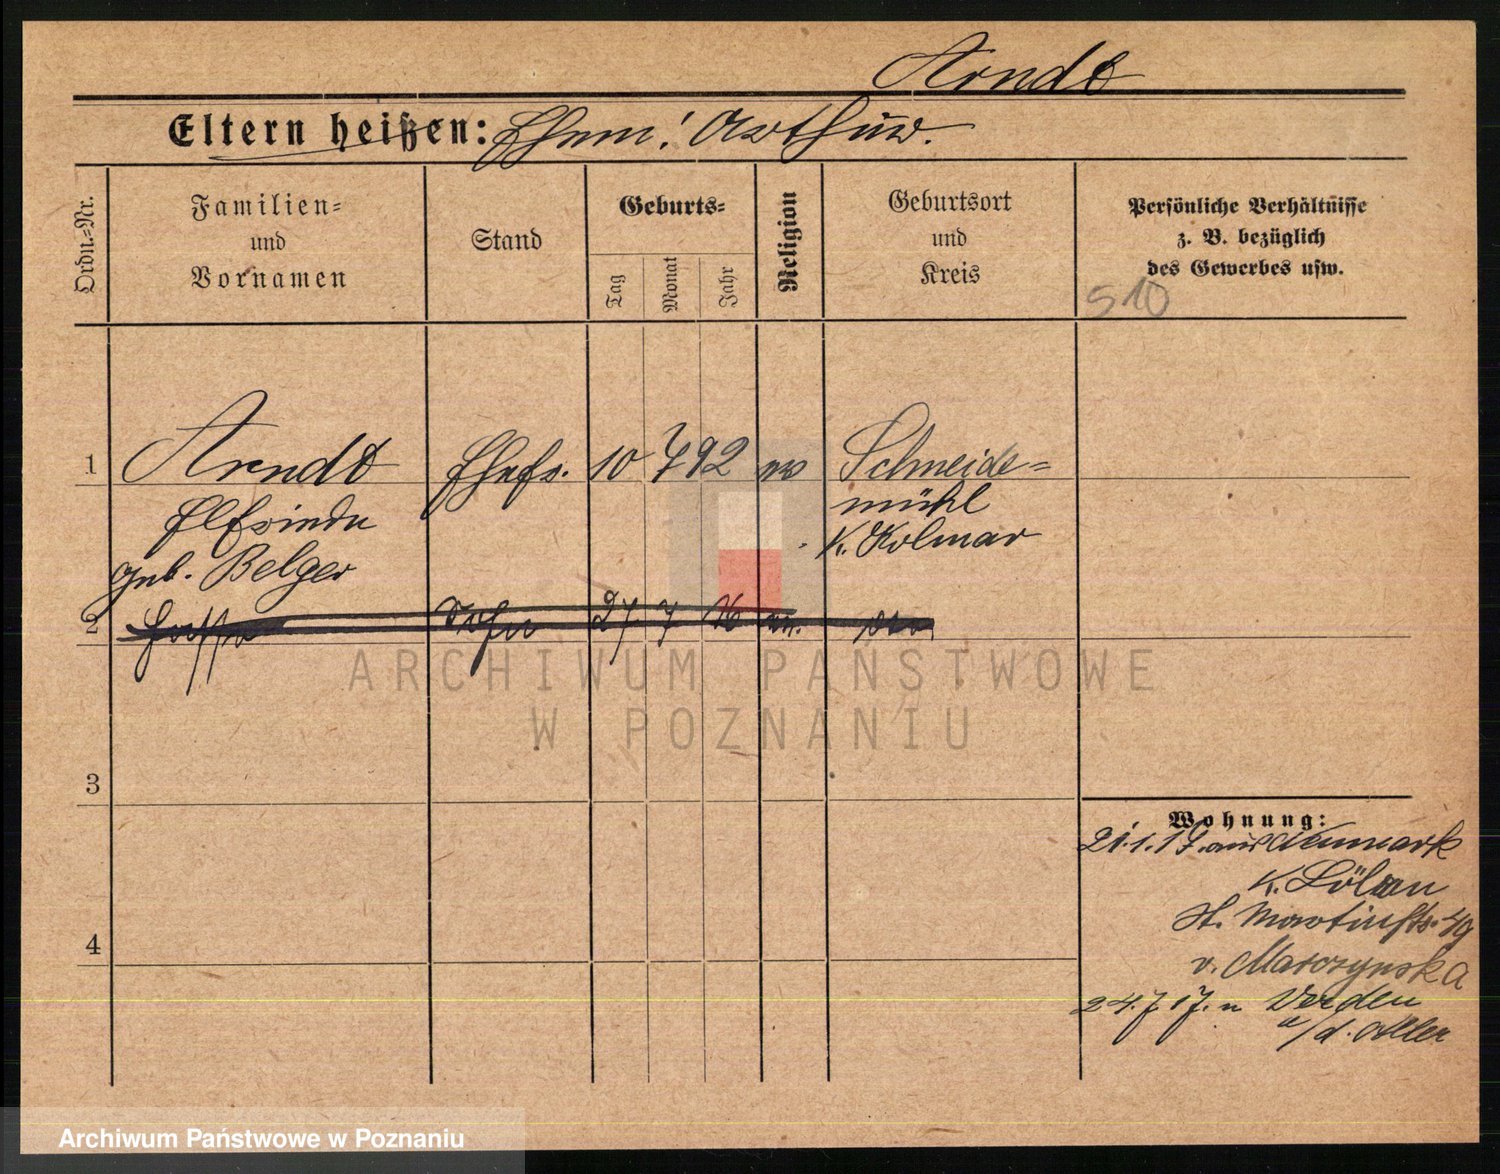 Arndt
Eltern heißen: Ehem: Arthur.
Ordn.=Nr.
Familien=
und
Vornamen
Stand
Geburts=
Tag
Monat
Jahr
Religion
Geburtsort
und
Kreis
Persönliche Verhältnisse
z. B. bezüglich
des Gewerbes usw.
510
1
Arndt
Ehefr. 10 7 92 ev
Schneide=
mühl
K. Kolmar
Elfriede
geb. Belger
2
Sohn 27. 7 16 ev.
3
4
Wohnung:
21.1.17. aus Neumark
K. Löbau
St. Martinstr. 49
v. Marczynska
24.7.17. n. Verden
a/d. Aller
ARCHIWUM PAŃSTWOWE
W POZNANIU
Archiwum Państwowe w Poznaniu